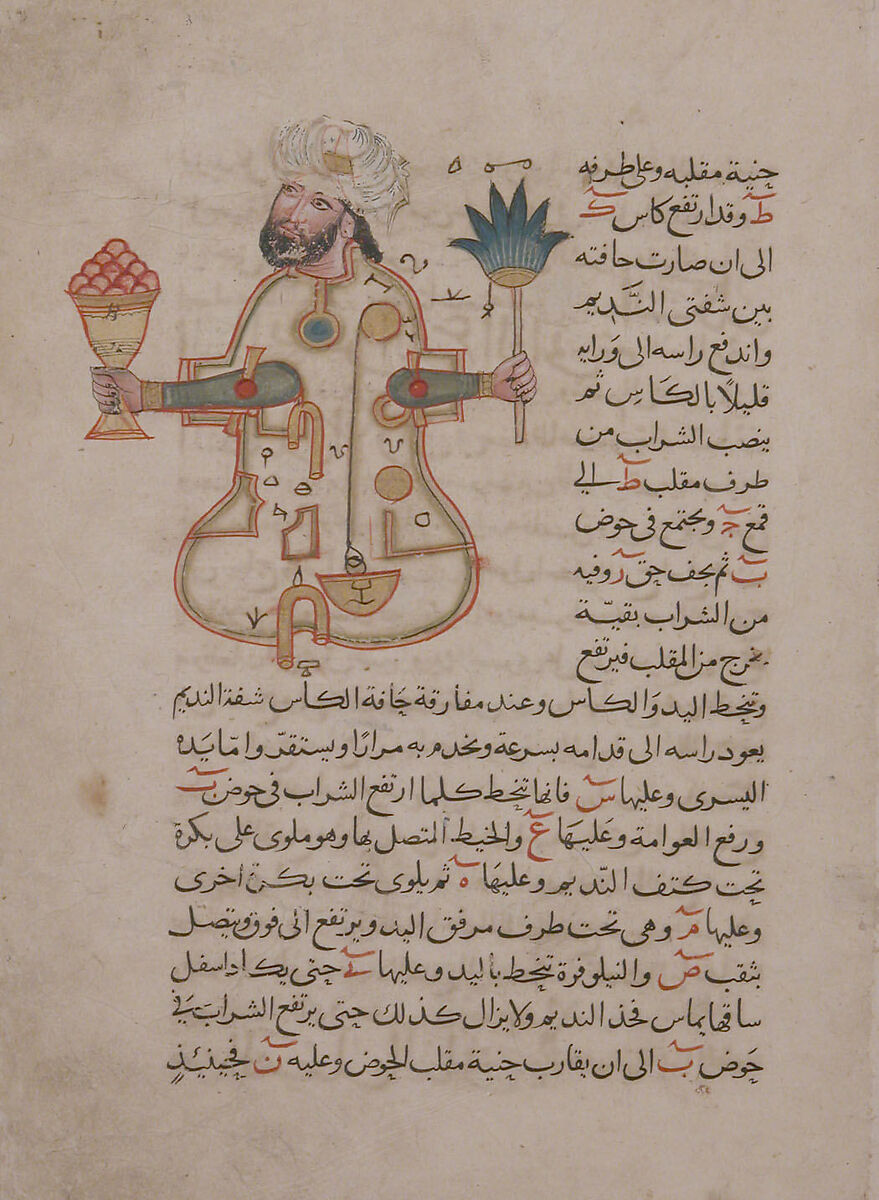 جنية مقلبه وعلى طرفه
ط وقد ارتفع كاس ك
الى ان صارت حافته
بين شفتى النَّديم
واندفع راسه الى وَرايه
قليلًا بالكَاسِ ثم
ينصب الشراب من
طرف مقلب ط الي
قمع ج ويجتمع فى حوض
ب ثم يجف حق ر وفيه
من الشراب بقيّة
يخرج من المقلب فيرتفع
وتنحط اليد وَالكاس وعند مفارقة حَافة الكاس شفة النديم
يعود راسه الى قدامه بسرعة ويخدم به مرارًا ويستقرّ وامّا يَده
اليسرى وعليها س فانها تنحط كلما ارتفع الشراب فى حوض ب
ورفع العوامة وعَليهَا ع والخيط المتصل بها وهو ملوى على بكرة
تحت كتف النّديم وعليهَا ه ثم يلوى تحت بكرة أخرى
وعليها م وهى تحت طرف مرفق اليد ويرتفع الى فوق ويتصل
بثقب ص والنيلوفرة تنحط باليد وعليها حتى يكاد اسفل
ساقها يماس فخذ النديم ولا يزال كذلك حتى يرتفع الشراب في
حَوض ب الى ان يقارب جنية مقلب الحوض وعليه ن فحينئذٍ